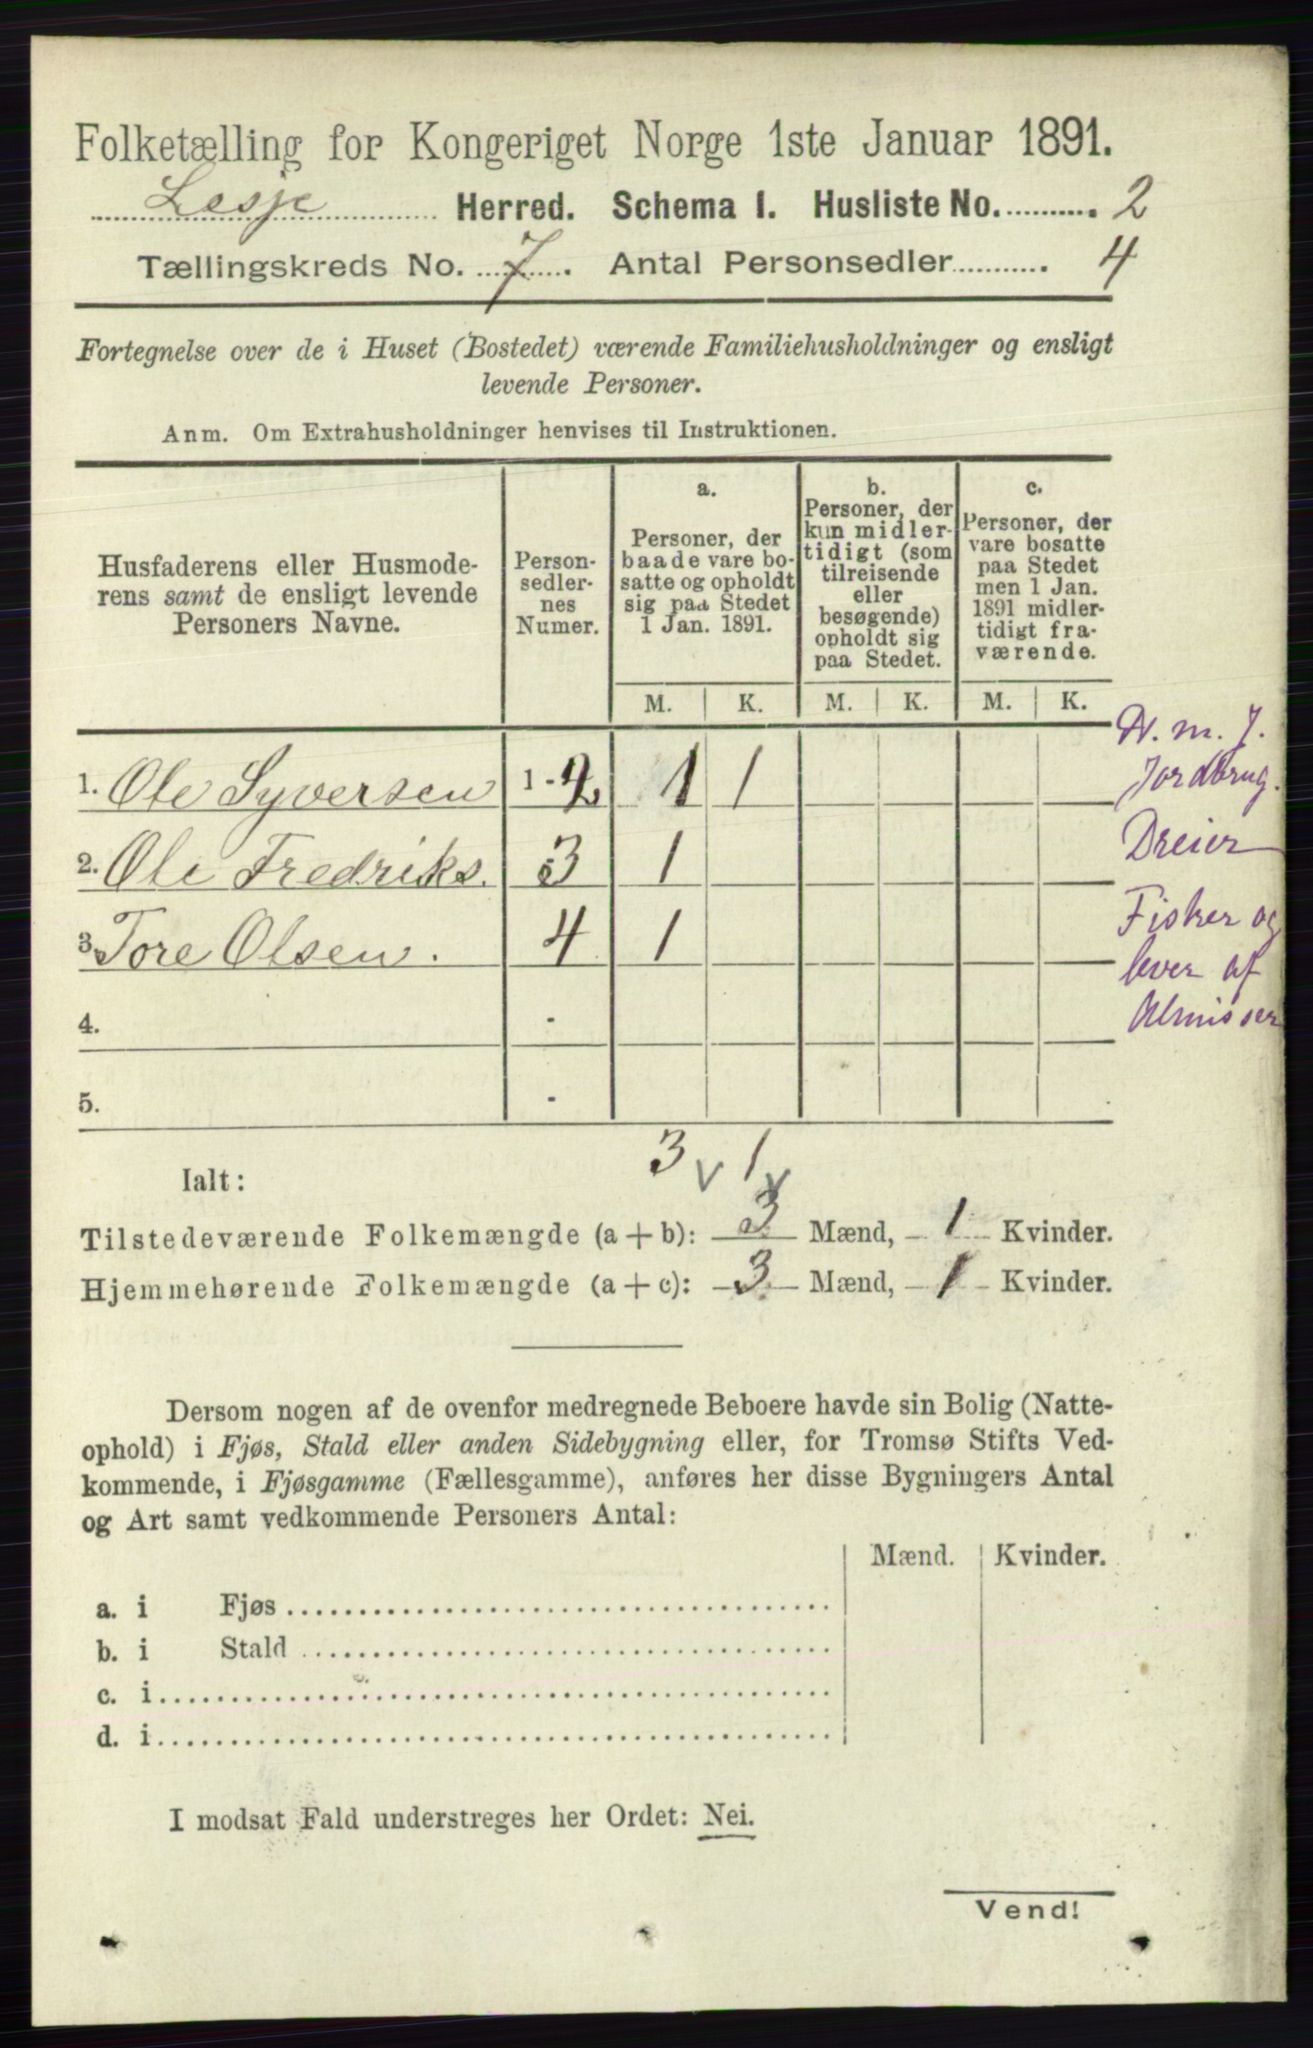 Folketælling for Kongeriget Norge 1ste Januar 1891.
Lesje Herred. Schema I. Husliste No. 2
Tællingskreds No. 7. Antal Personsedler 4
Fortegnelse over de i Huset (Bostedet) værende Familiehusholdninger og ensligt
levende Personer.
Anm. Om Extrahusholdninger henvises til Instruktionen.
Husfaderens eller Husmode-
rens samt de ensligt levende
Personers Navne.
Person-
sedler-
nes
Numer.
a.
Personer, der
baade vare bo-
satte og opholdt
sig paa Stedet
1 Jan. 1891.
b.
Personer, der
kun midler-
tidigt (som
tilreisende
eller
besøgende)
opholdt sig
paa Stedet.
c.
Personer, der
vare bosatte
paa Stedet
men 1 Jan.
1891 midler-
tidigt fra-
værende.
M. K. M. K. M. K.
1. Ole Syversen 1-2 1 1 m. J. Jordbrug.
2. Ole Fredriks. 3 1 Dreier
3. Tore Olsen. 4 1 Fisker og
lever af
Almisser
4. -
5. -
3 v 1 v
Ialt:
Tilstedeværende Folkemængde (a + b): 3 Mænd, 1 Kvinder.
Hjemmehørende Folkemængde (a + c): 3 Mænd, 1 Kvinder.
Dersom nogen af de ovenfor medregnede Beboere havde sin Bolig (Natte-
ophold) i Fjøs, Stald eller anden Sidebygning eller, for Tromsø Stifts Ved-
kommende, i Fjøsgamme (Fællesgamme), anføres her disse Bygningers Antal
og Art samt vedkommende Personers Antal:
Mænd. Kvinder.
a. i Fjøs
b. i Stald
c. i
d. i
I modsat Fald understreges her Ordet: Nei.
Vend!